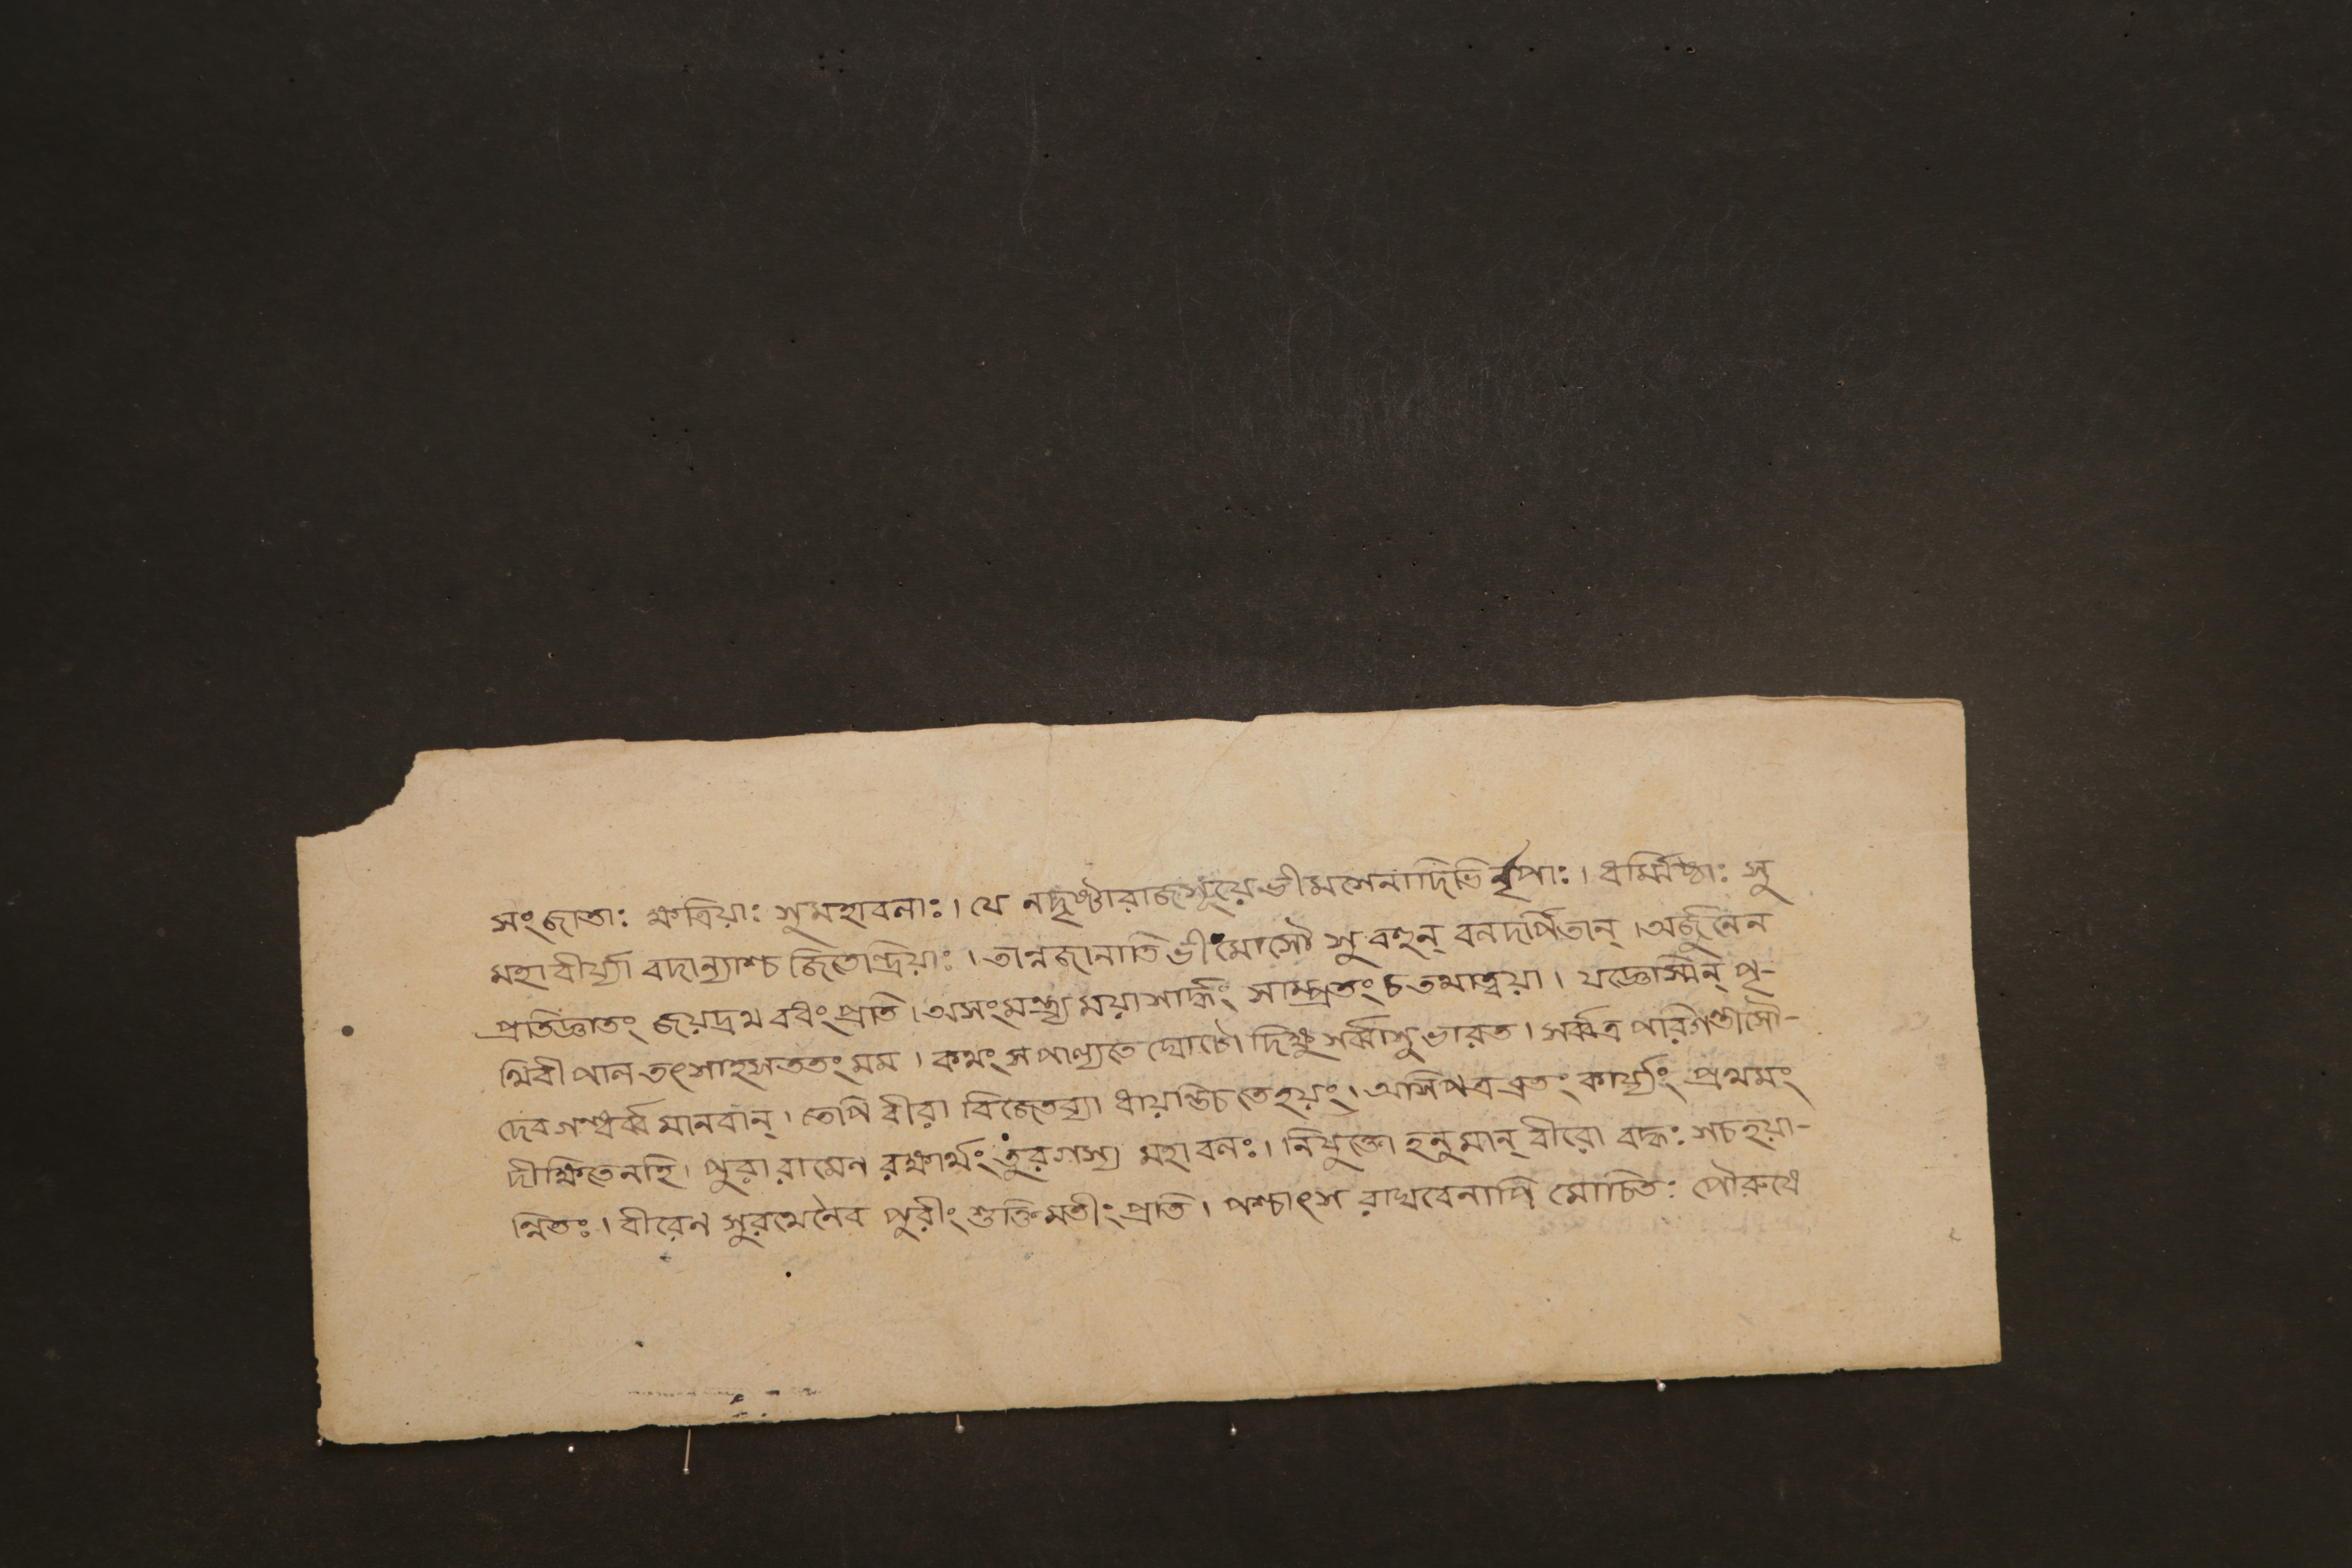 সংজাতাঃ ক্ষত্রিয়াঃ সুমহাবলাঃ। যে নদৃষ্টারাজসূয়েভীমসেনাদিভির্নৃপাঃ। ধর্ম্মিষ্ঠাঃ সু
মহাবীর্য্যা বদান্যাশ্চ জিতেন্দ্রিয়াঃ। তান্নজানাতি ভীমোসৌ সুবহুন্ বলদর্পিতান্। অর্জুনেন
প্রতিজ্ঞাতং জয়দ্রথ বধং প্রতি। অসংমন্ত্র্য ময়াসার্দ্ধং সাম্প্রতংচ তথাত্বয়া। যজ্ঞেস্মিন্ পৃ-
থিবীপাল তৎসাহসততং মম। কথং সপাল্যতে ঘোটো দিক্ষুসর্ব্বাসু ভারত। সর্ব্বত্র পরিগন্তাসৌ-
দেবগন্ধর্ব্ব মানবান্। তেপি বীরা বিজেতব্যা ধায়ন্তিচ তেহয়ং। অসিপত্র ব্রতং কার্য্যং প্রথমং
দীক্ষিতেনহি। পুরা রামেণ রক্ষার্থং তুরগস্য মহাবলঃ। নিযুক্তো হনুমান্ বীরো বদ্ধঃ সচহয়া-
ন্বিতঃ। বীরেণ সুরথেনৈব পুরীং শুক্তিমতীং প্রতি। পশ্চাৎস রাঘবেনাপি মোচিতঃ পৌরুষে